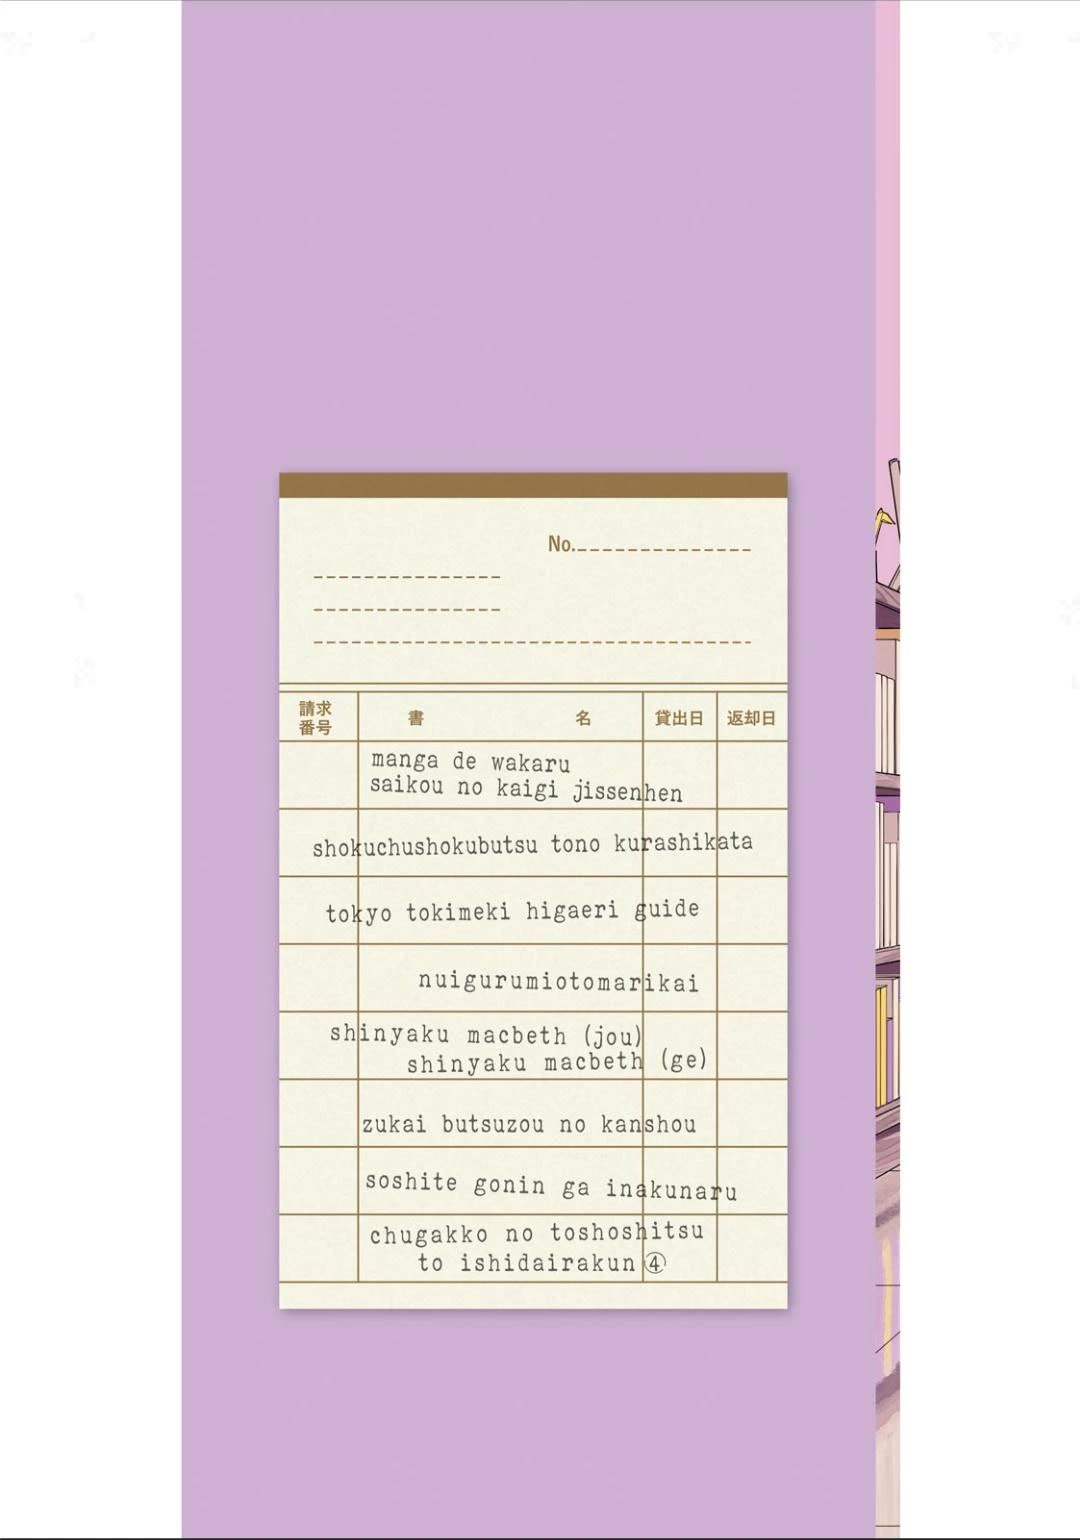 No.
請求番号 書名 貸出日 返却日
manga de wakaru
saikou no kaigi jissenhen
shokuchushokubutsu tono kurashikata
tokyo tokimeki higaeri guide
nuigurumiotomarikai
shinyaku macbeth (jou)
shinyaku macbeth (ge)
zukai butsuzou no kanshou
soshite gonin ga inakunaru
chugakko no toshoshitsu
to ishidairakun④